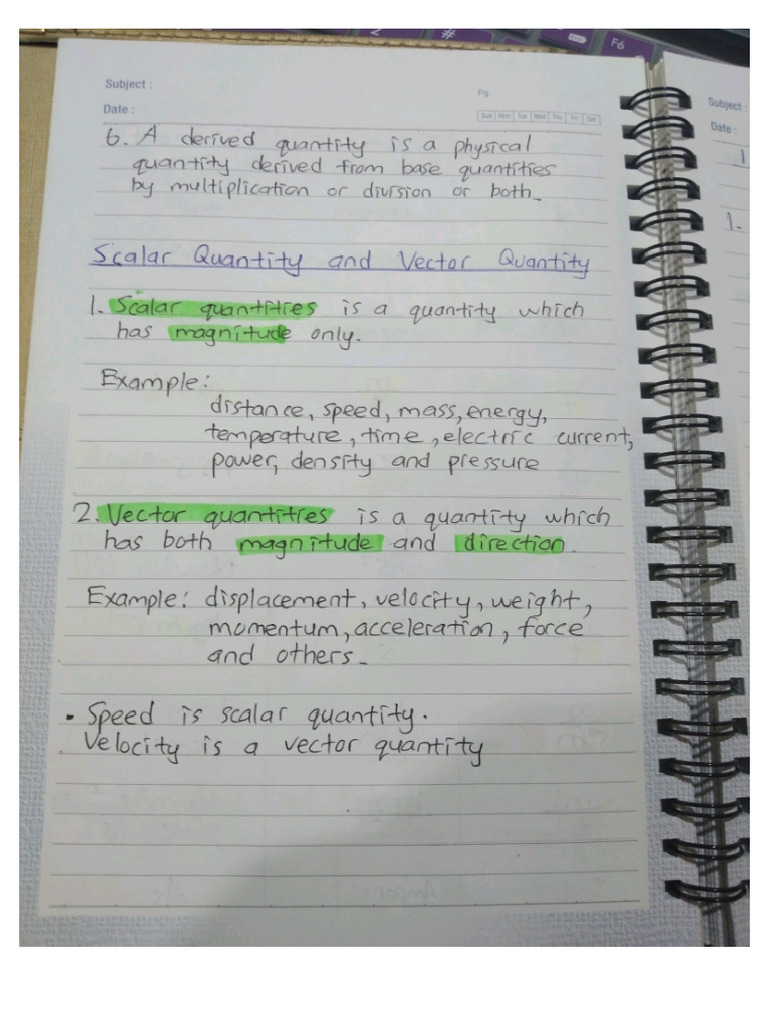 2
#
F6
Subject :
Pg.
Date :
Sun Mon Tue Wed Thu Fri Sat
6. A derived quantity is a physical
quantity derived from base quantities
by multiplication or division or both.
Scalar Quantity and Vector Quantity
1. Scalar quantities is a quantity which
has magnitude only.
Example:
distance, speed, mass, energy,
temperature, time, electric current,
power, density and pressure
2. Vector quantities is a quantity which
has both magnitude and direction.
Example: displacement, velocity, weight,
momentum, acceleration, force
and others.
• Speed is scalar quantity.
Velocity is a vector quantity
Subject :
Date :
1
1.